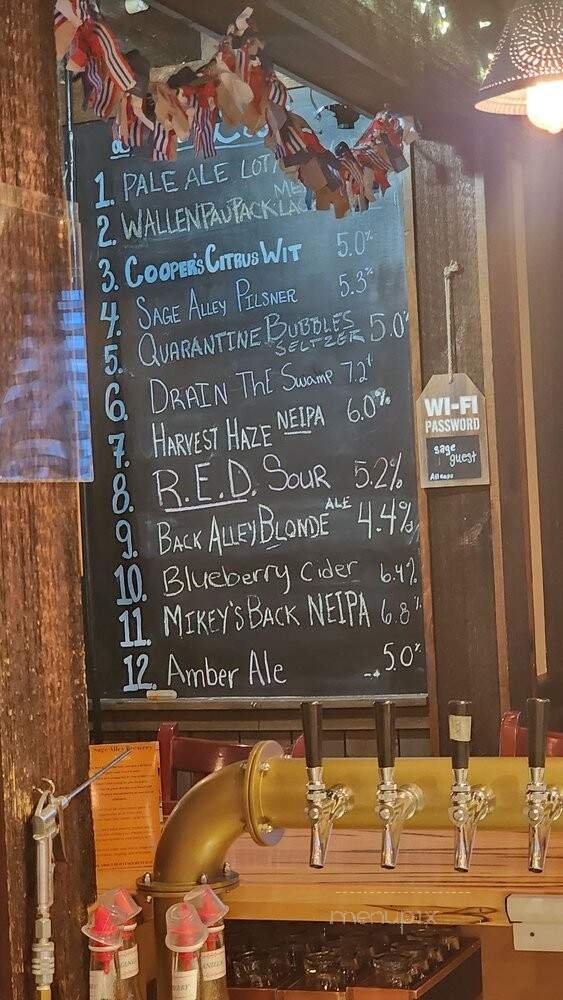 1. PALE ALE
2. WALLENPAUPACK
3. COOPER'S CITRUS WIT 5.0%
4. SAGE ALLEY PILSNER 5.3%
5. QUARANTINE BUBBLES SELTZER 5.0%
6. DRAIN THE Swamp 7.2%
7. HARVEST HAZE NEIPA 6.0%
8. R.E.D. SOUR 5.2%
9. BACK ALLEY BLONDE ALE 4.4%
10. Blueberry Cider 6.4%
11. MIKEY'S BACK NEIPA 6.8%
12. Amber Ale 5.0%
WI-FI
PASSWORD
sage
guest
Sage Alley Brewery
menupix